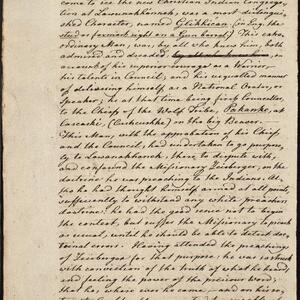 come to see the new Christian Indian Congrega-
tion at Lawunakhannek, was a most distingui-
shed Character, named Glikkican (in Eng. the
stud or foremost sight on a Gun barrel) This extra-
ordinary Man, was, by all who knew him, both
admired and dreaded, on
account of his superior courage as a Warrior,
his talents in Council, and his unequalled manner
of delivering himself as a National Orator, or
Speaker, he at that time being first Counsellor,
to the Chief of the Wolf Tribe, Pakanke, at
Cascaski, (Cushcushke) on the big Beaver.
This Man, with the approbation of his Chief
and the Council, had undertaken to go purpose-
ly to Lawanakhannek, there to dispute with,
and confound the Missionary Zeisberger, on the
doctrine he was preaching to the Indians. Al-
tho he had thought himself armed at all points,
sufficiently to withstand any white preachers
doctrine: he had the good sense not to begin
the contest, but suffer the Missionary to preach
as usual, until he should be able to detect doc-
trinal errors. Having attended the preachings
of Zeisberger (for that purpose) he was so struck
with conviction of the truth of what he heard,
and feeling the power of the precious Word;
that he, when once he came, and on his